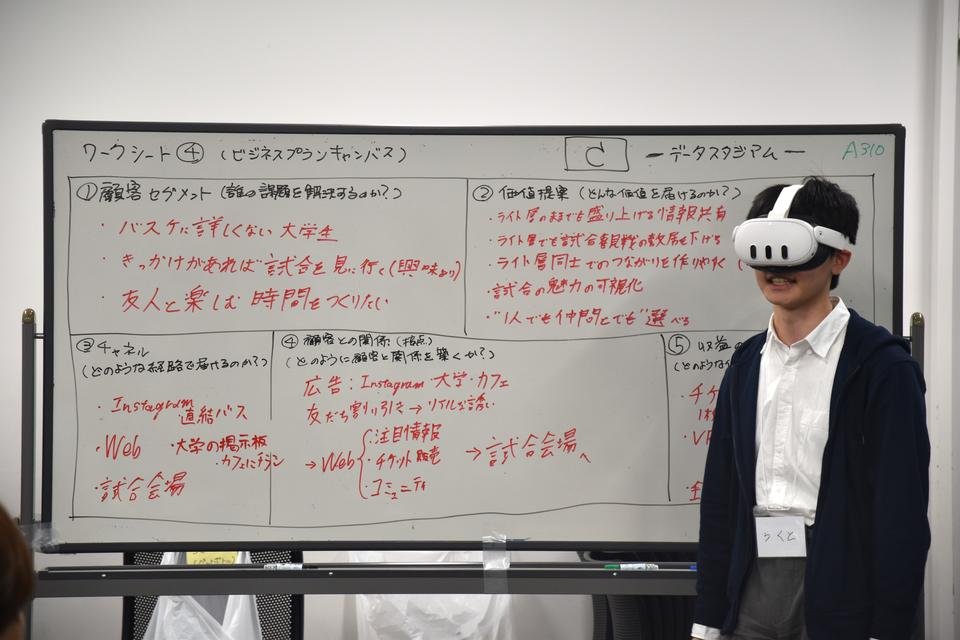 ワークシート④ (ビジネスプランキャンバス)
C
ーデータスタジアムー
A310
①顧客セグメント (誰の課題を解決するのか?)
・バスケに詳しくない大学生
・きっかけがあれば試合を見に行く(興味あり)
・友人と楽しむ時間をつくりたい
②価値提案 (どんな価値を届けるのか?)
・ライト層のままでも盛り上げる情報共有
・ライト層でも試合観戦の敷居を下げる
・ライト層同士でのつながりを作りやすく (
・試合の魅力の可視化
・"1人でも仲間とでも"選べる
③チャネル
(どのような経路で届けるのか?)
・Instagram
直結バス
・Web
・大学の掲示板
・カフェにチラシ
・試合会場
④顧客との関係(接点)
(どのように顧客と関係を築くか?)
広告:Instagram 大学・カフェ
友だち割り引き→リアルな誘い
→Web
・注目情報
・チケット販売
・コミュニティ
→試合会場へ
⑤収益の
(どのような
・チケ
・VR
らくと